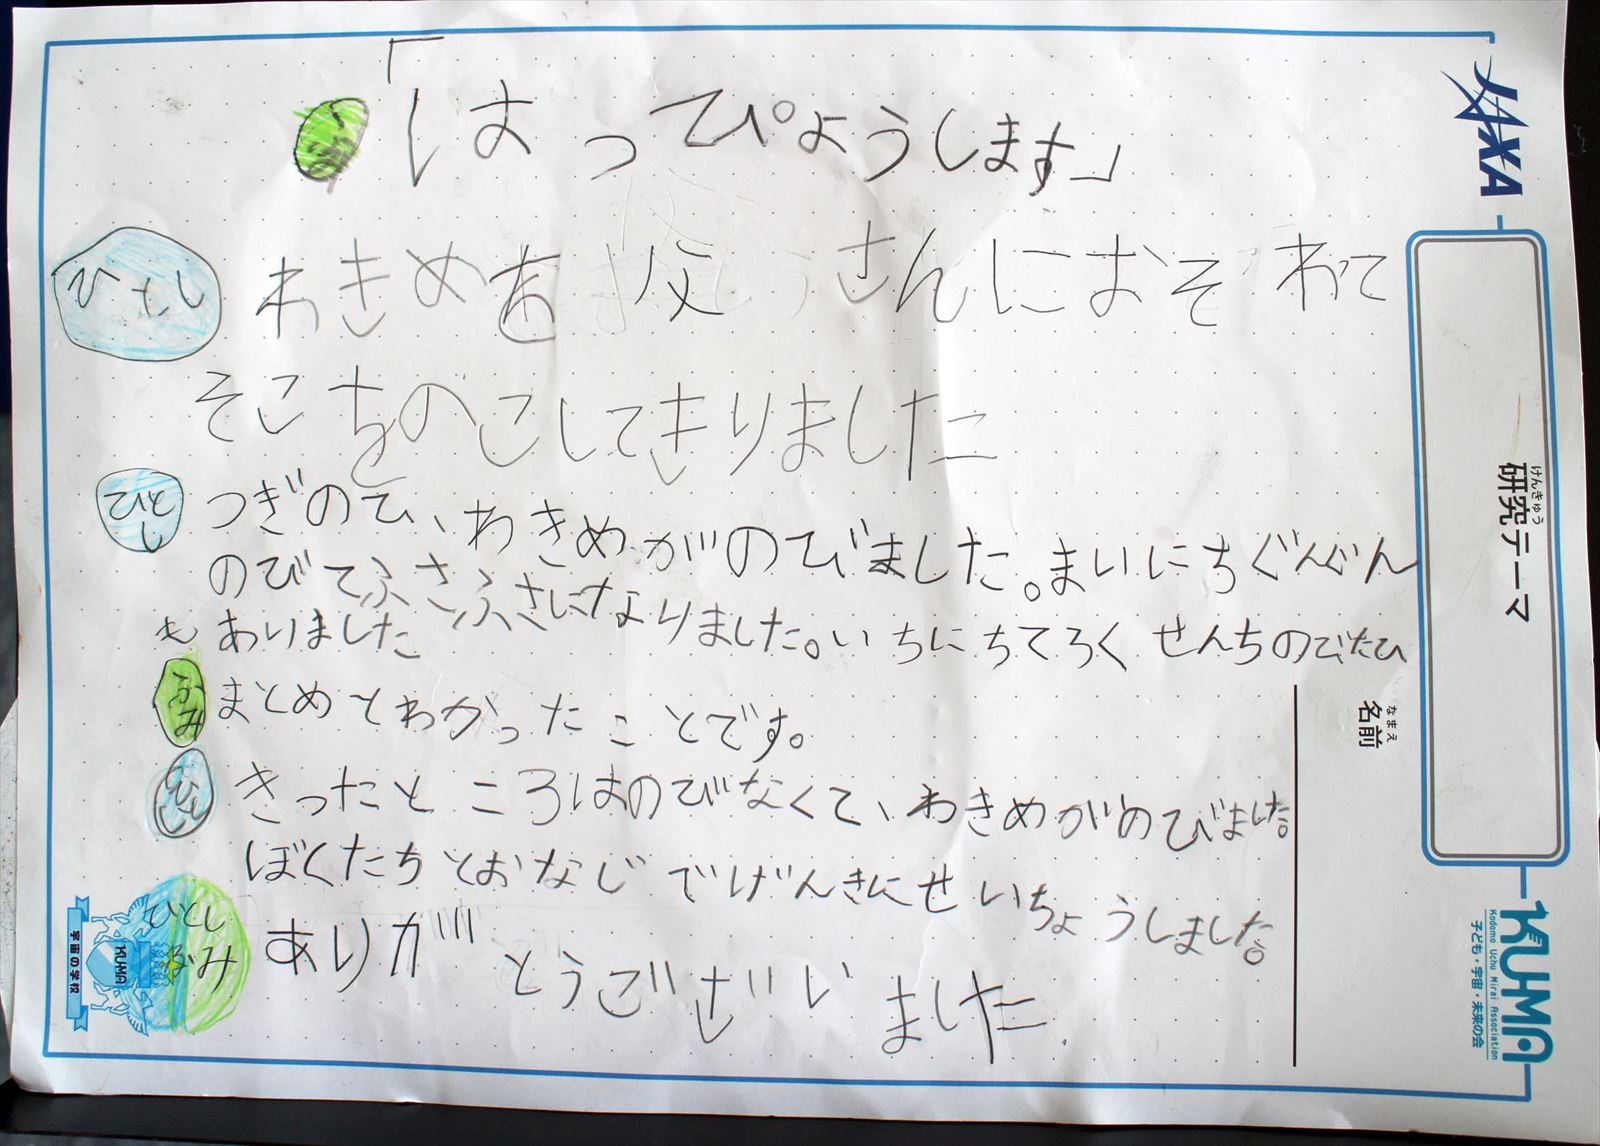 「はっぴょうします」
ひとし わきめを父さんにおそわて
そこをのこしてきりました
ひとし つぎのひ、わきめがのびました。まいにちぐんぐん
のびてふさふさになりました。いちにちでろくせんちのびたひ
もありました
ふみ まとめとわかったことです。
ひとし きったところはのびなくて、わきめがのびました。
ぼくたちとおなじでげんきにせいちょうしました。
ひとし ふみ ありがとうございました
JAXA
けんきゅう
研究テーマ
なまえ
名前
KUMA
Kodomo Uchu Mirai Association
子ども・宇宙・未来の会
KUMA
宇宙の学校